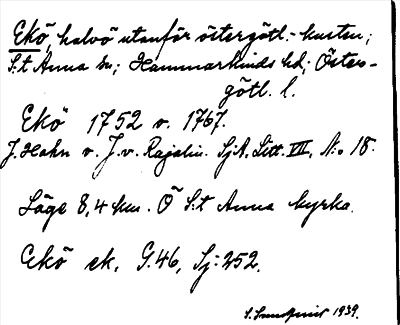 Ekö, halvö utanför östergötl.-kusten;
S:t Anna sn; Hammarkinds hd; Öster-
götl. l.
Ekö 1752 v. 1767.
J. Hahn v. J. v. Rajalin. SjA. Litt. VII, N:o 18.
Läge 8,4 km. Ö S:t Anna kyrka.
Ekö ek. G:46, Sj:252.
S. 1939.